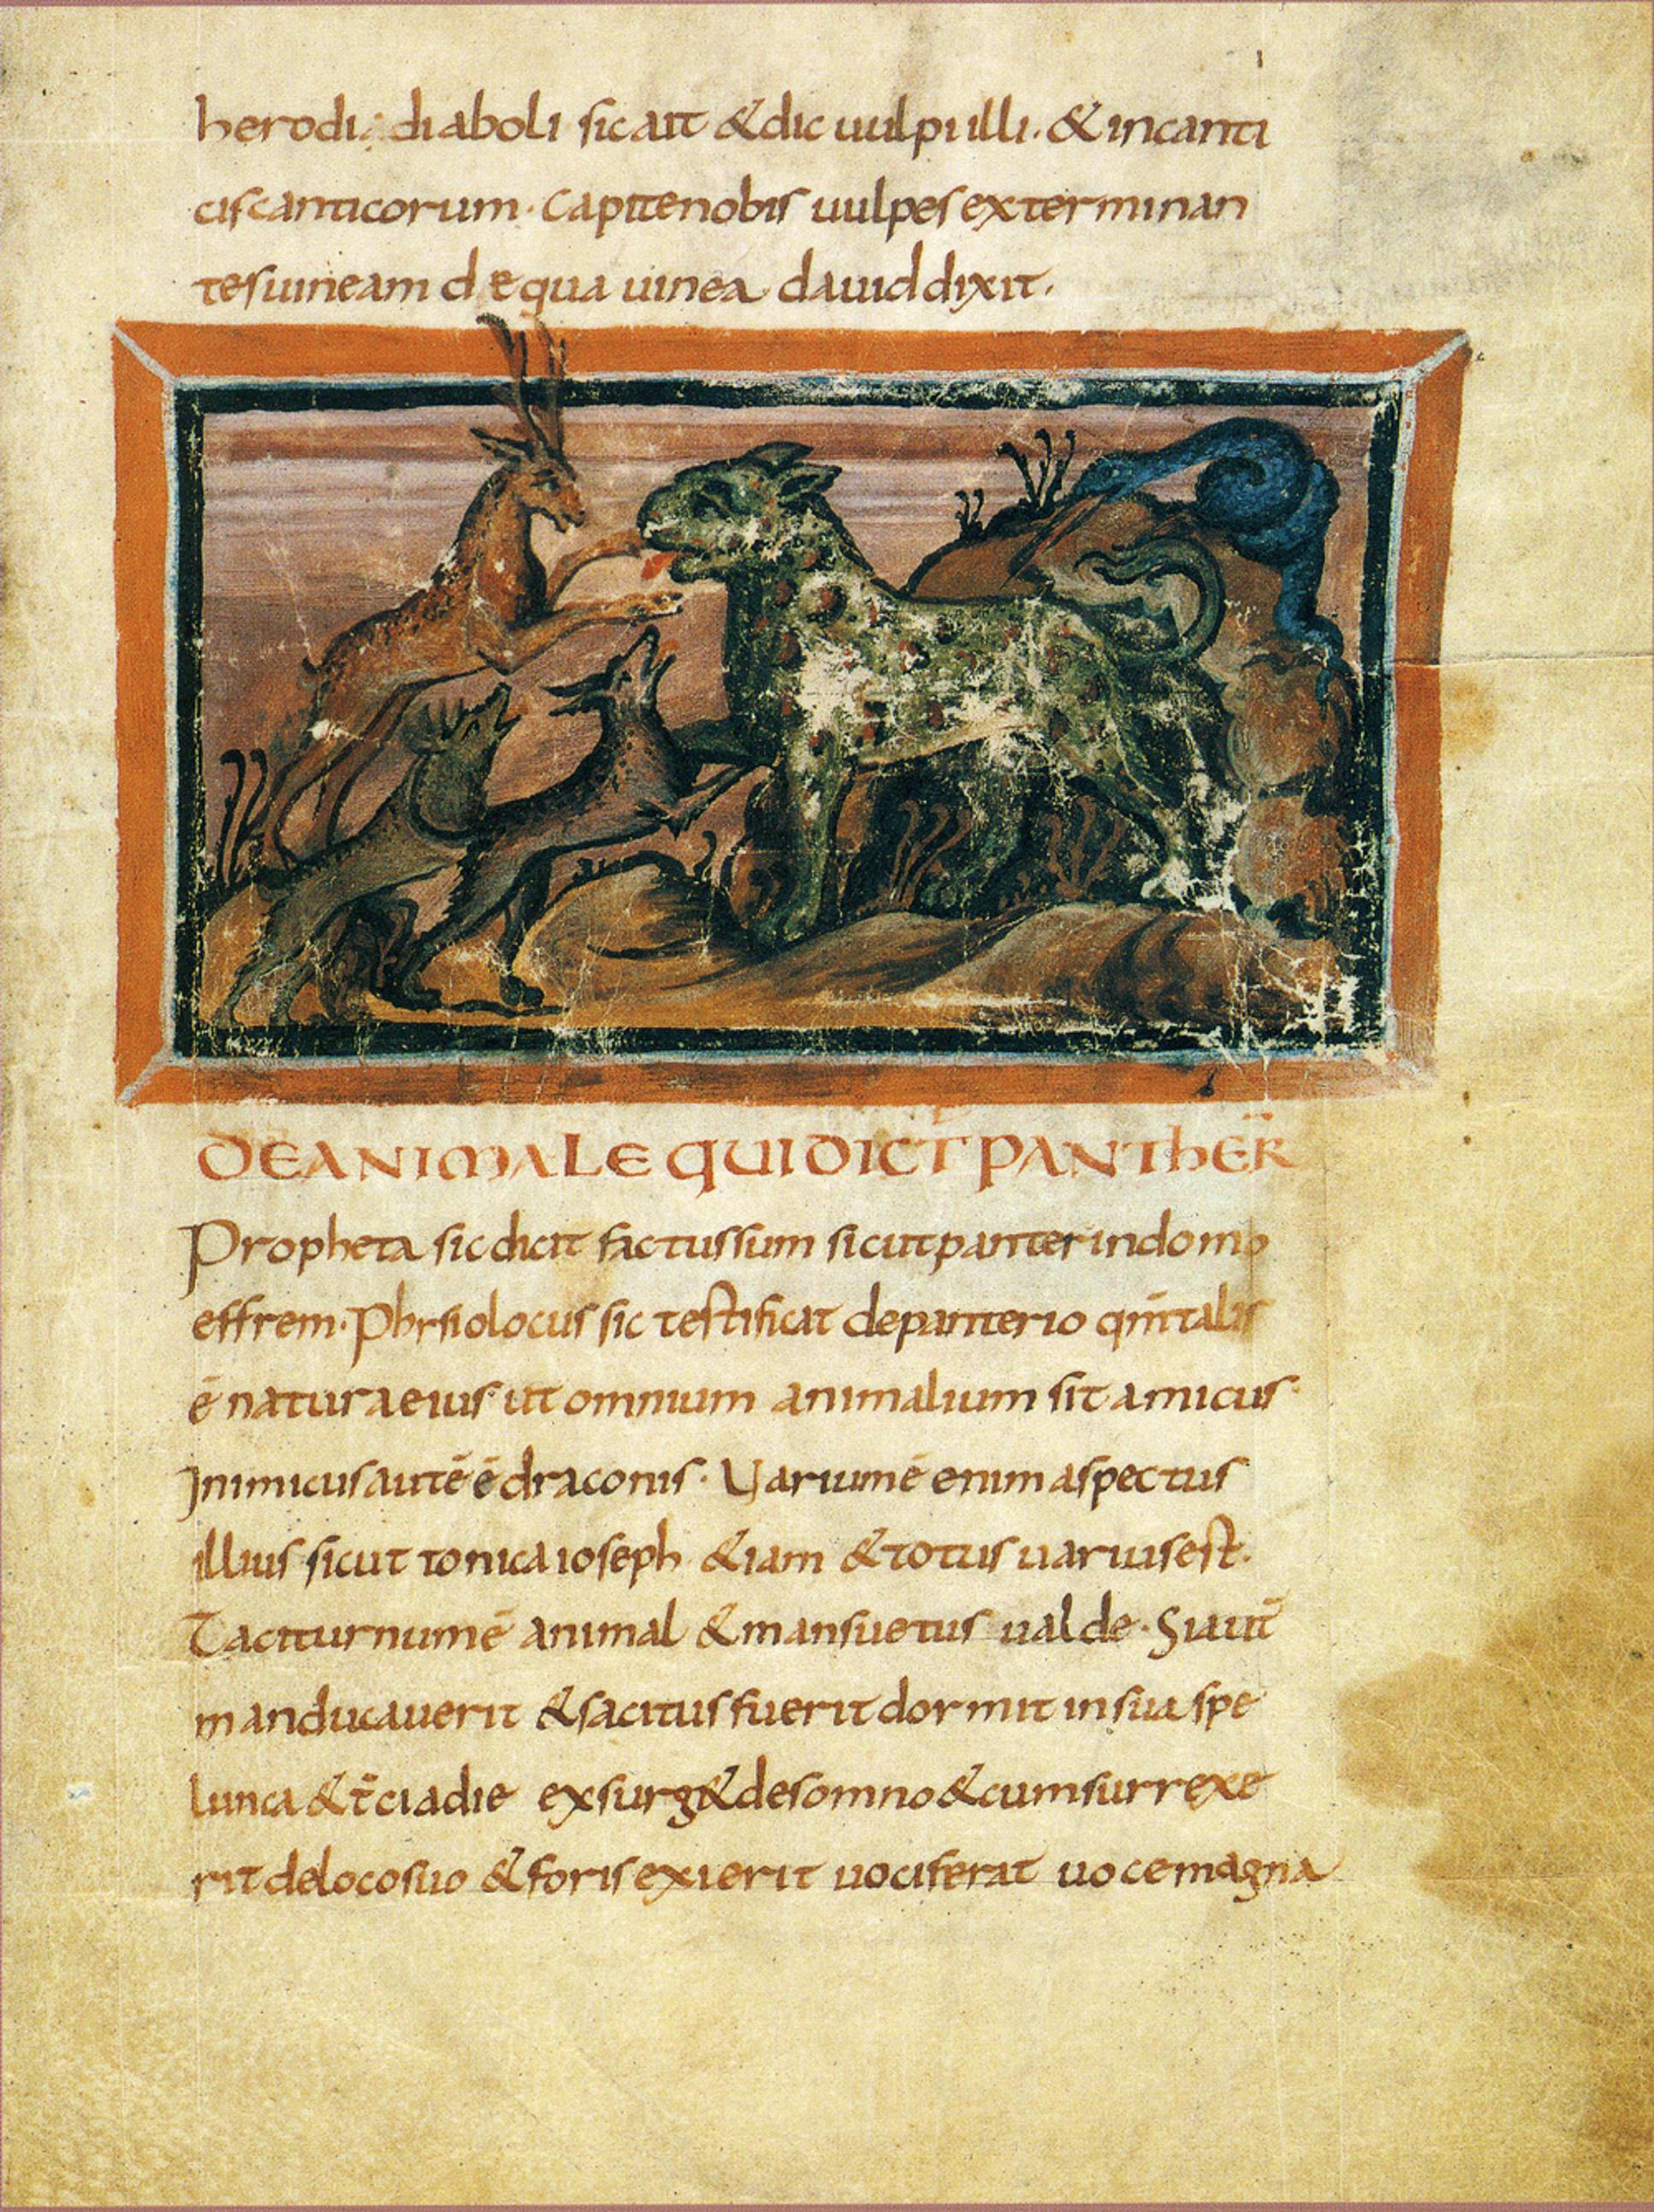 herodi; diaboli sic ait & dic uulpi illi. & in canti
cis canticorum. Capite nobis uulpes exterminan
tes uineam de qua uinea dauid dixit.
DE ANIMALE QUI DICT̄ PANTHER̄
Propheta sic dicit factus sum sicut panter in domo
effrem. Phisiolocus sic testificat de panterio qm̄ talis
ē natura eius ut omnium animalium sit amicus.
Inimicus autē ē draconis. Uarium ē enim aspectus
illius sicut tonica ioseph &iam & totus uarius est.
Taciturnum ē animal & mansuetus ualde. Si aut̄
manducauerit & sacitus fuerit dormit in sua spe
lunca & t̄cia die exsurg& de somno & cum surrexe
rit de loco suo & foris exierit uociferat uoce magna